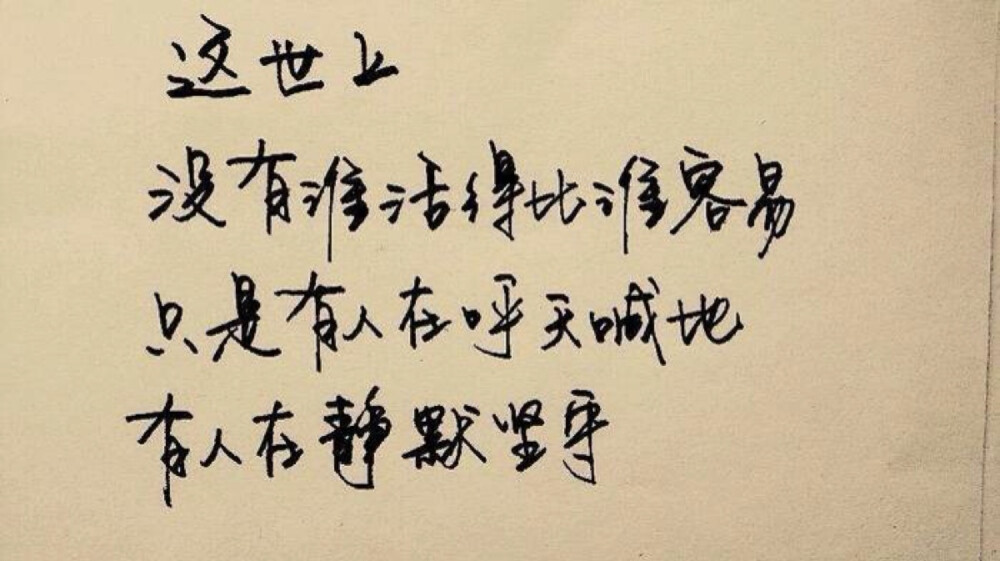 这世上
没有谁活得比谁容易
只是有人在呼天喊地
有人在静默坚守